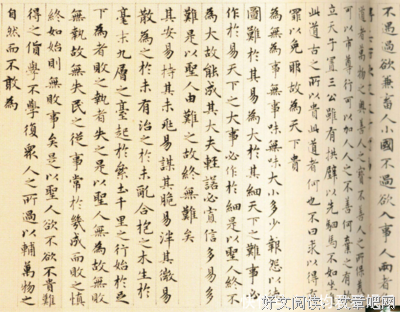 不過欲兼畜人小國不過欲入事人兩者
道者萬物之奧善人之寶不善人之所保美
可以市尊行可以加人人之不善何棄之有
立天子置三公雖有拱璧以先駟馬不如坐進
此道古之所以貴此道者何也不曰求以得有
罪以免耶故為天下貴
為無為事無事味無味大小多少報怨以德
圖難於其易為大於其細天下之難事必
作於易天下之大事必作於細是以聖人終不
為大故能成其大夫輕諾必寡信多易多
難是以聖人由難之故終無難矣
其安易持其未兆易謀其脆易泮其微易
散為之於未有治之於未亂合抱之木生於
毫末九層之臺起於累土千里之行始於足
下為者敗之執者失之是以聖人無為故無敗
無執故無失民之從事常於幾成而敗之慎
終如始則無敗事矣是以聖人欲不欲不貴難
得之貨學不學復衆人之所過以輔萬物之
自然而不敢為
好文阅读 文章吧网